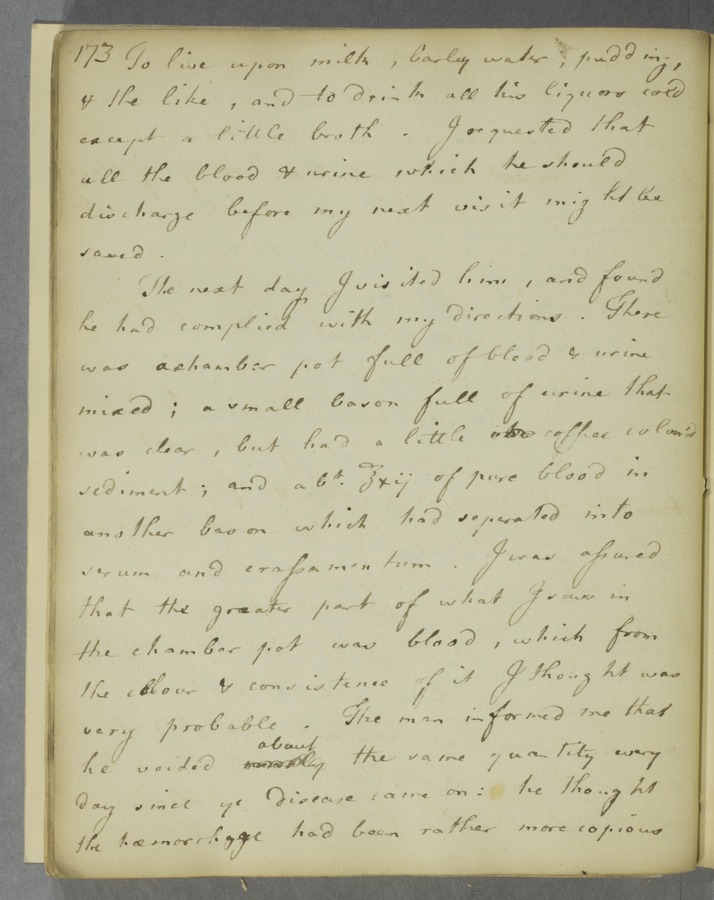 173 To live upon milk, barley water, pudding,
& the like, and to drink all his liquors cold
except a little broth. I requested that
all the blood & urine which he should
discharge before my next visit might be
saved.
The next day I visited him, and found
he had complied with my directions. There
was a chamber pot full of blood & urine
mixed; a small bason full of urine that
was clear, but had a little coffee colour'd
sediment; and abt. ℥xij of pure blood in
another bason which had seperated into
serum and crassamentum. I was assured
that the greater part of what I saw in
the chamber pot was blood, which from
the colour & consistence of it I thought was
very probable. The man informed me that
he voided about the same quantity every
day since ye disease came on: he thought
the hæmorrhage had been rather more copious